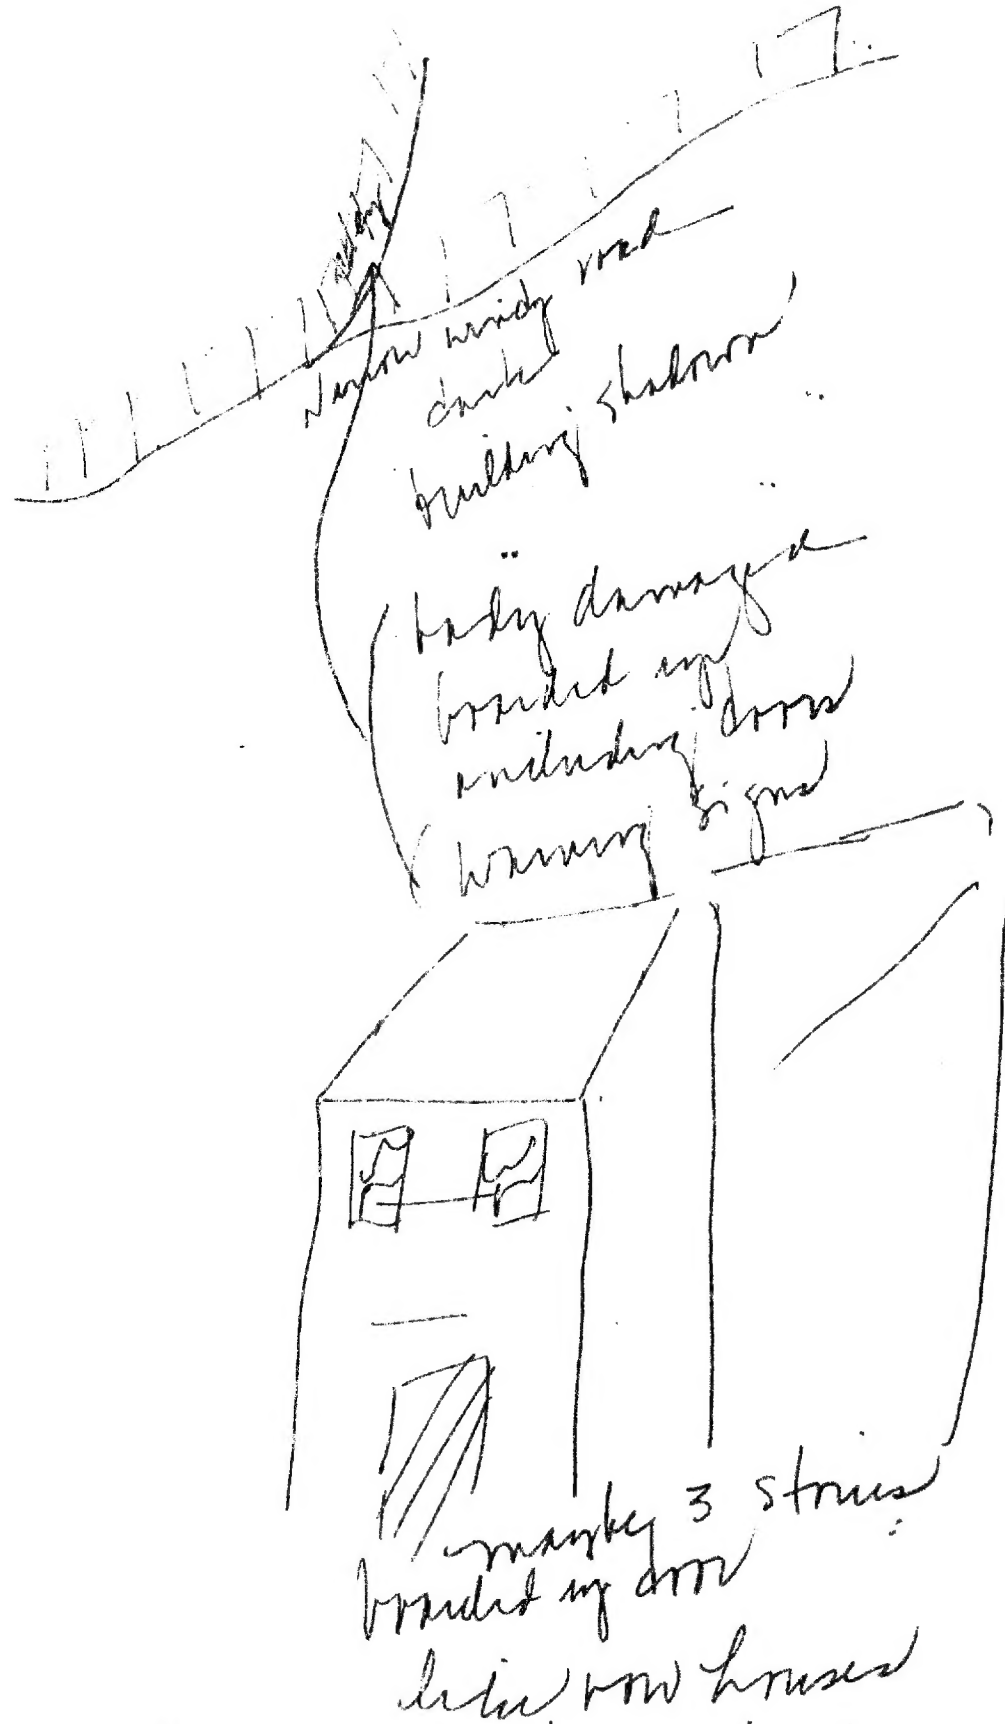 Narrow windy road
dark
building shadows
badly damaged
boarded up
including doors
warning signs
maybe 3 stories
boarded up door
like row houses